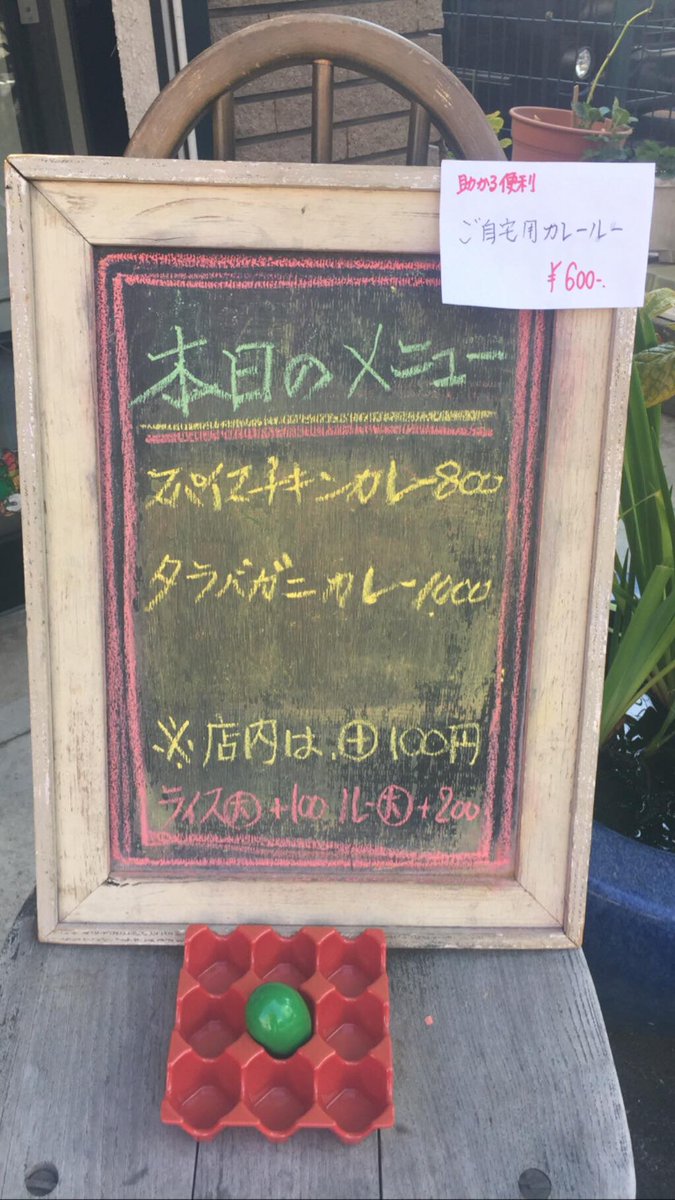 助かる便利
ご自宅用カレールー
¥600-.
本日のメニュー
スパイスチキンカレー800
タラバガニカレー1000
※店内は、⊕100円
ライス㊛+100 ルー㊛+200